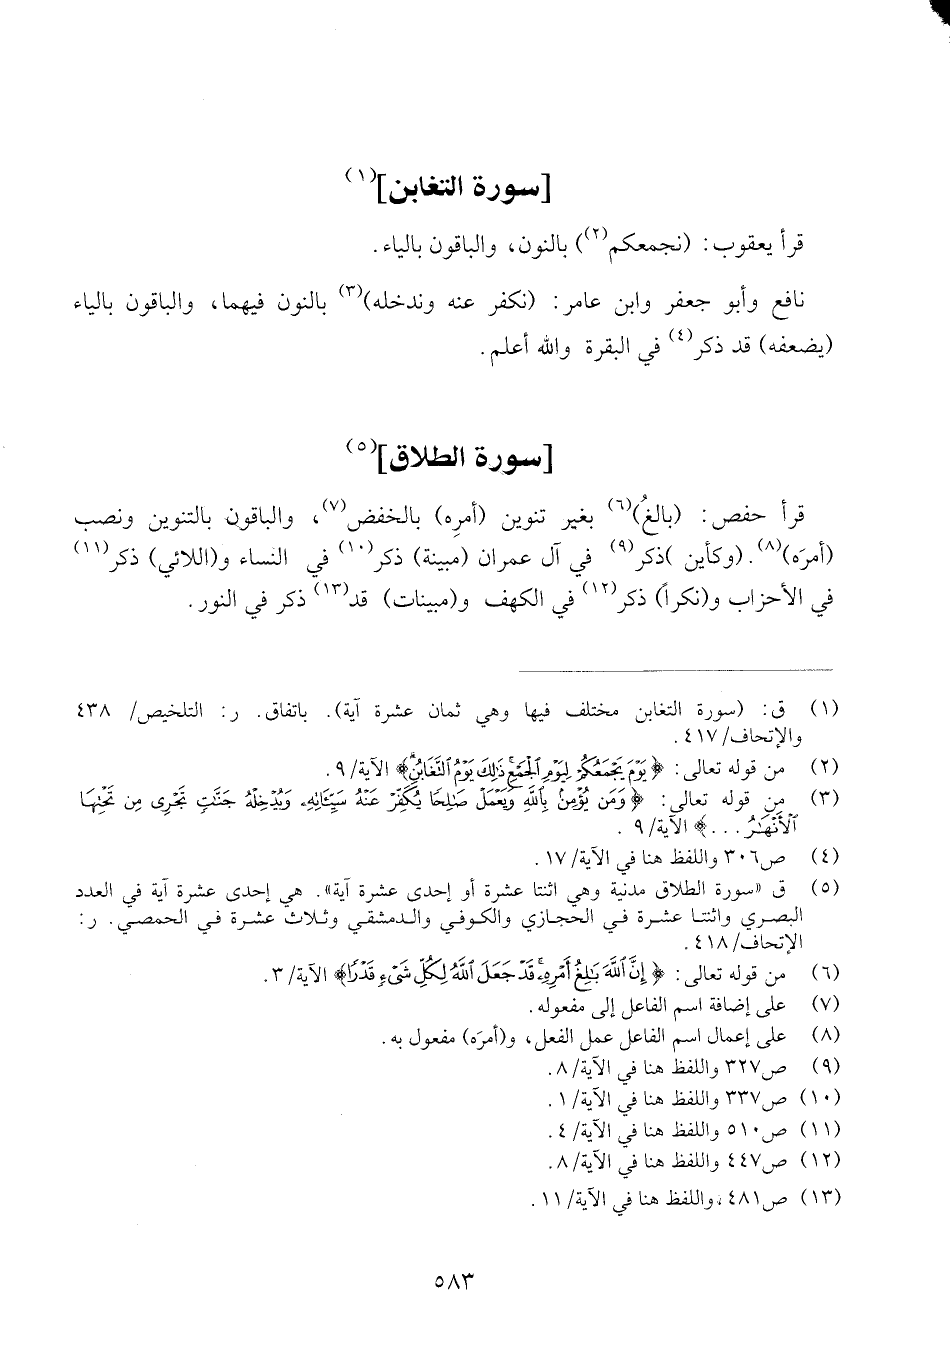 [سورة التغابن](١)
قرأ يعقوب: (نجمعكم(٢)) بالنون، والباقون بالياء.
نافع وأبو جعفر وابن عامر: (نكفر عنه وندخله)(٣) بالنون فيهما، والباقون بالياء
(يضعفه) قد ذكر(٤) في البقرة والله أعلم.
[سورة الطلاق](٥)
قرأ حفص: (بالغُ)(٦) بغير تنوين (أمرِه) بالخفض(٧)، والباقون بالتنوين ونصب
(أمرَه)(٨). (وكأين )ذكر(٩) في آل عمران (مبينة) ذكر(١٠) في النساء و(اللائي) ذكر(١١)
في الأحزاب و(نكراً) ذكر(١٢) في الكهف و(مبينات) قد(١٣) ذكر في النور.
(١) ق: (سورة التغابن مختلف فيها وهي ثمان عشرة آية). باتفاق. ر: التلخيص/ ٤٣٨
والإتحاف/ ٤١٧.
(٢) من قوله تعالى: ﴿يَوْمَ يَجْمَعُكُمْ لِيَوْمِ الْجَمْعِ ذَٰلِكَ يَوْمُ التَّغَابُنِ﴾ الآية/ ٩.
(٣) من قوله تعالى: ﴿وَمَن يُؤْمِنۢ بِاللَّهِ وَيَعْمَلْ صَٰلِحًا يُكَفِّرْ عَنْهُ سَيِّـَٔاتِهِۦ وَيُدْخِلْهُ جَنَّٰتٍ تَجْرِى مِن تَحْتِهَا
الْأَنْهَٰرُ ...﴾ الآية/ ٩ .
(٤) ص٣٠٦ واللفظ هنا في الآية/ ١٧.
(٥) ق «سورة الطلاق مدنية وهي اثنتا عشرة أو إحدى عشرة آية». هي إحدى عشرة آية في العدد
البصري واثنتا عشرة في الحجازي والكوفي والدمشقي وثلاث عشرة في الحمصي. ر:
الإتحاف/ ٤١٨.
(٦) من قوله تعالى: ﴿إِنَّ اللَّهَ بَٰلِغُ أَمْرِهِۦ قَدْ جَعَلَ اللَّهُ لِكُلِّ شَىْءٍ قَدْرًا﴾ الآية/ ٣.
(٧) على إضافة اسم الفاعل إلى مفعوله.
(٨) على إعمال اسم الفاعل عمل الفعل، و(أمرَه) مفعول به.
(٩) ص٣٢٧ واللفظ هنا في الآية/ ٨.
(١٠) ص٣٣٧ واللفظ هنا في الآية/ ١.
(١١) ص٥١٠ واللفظ هنا في الآية/ ٤.
(١٢) ص٤٤٧ واللفظ هنا في الآية/ ٨.
(١٣) ص٤٨١، واللفظ هنا في الآية/ ١١.
٥٨٣